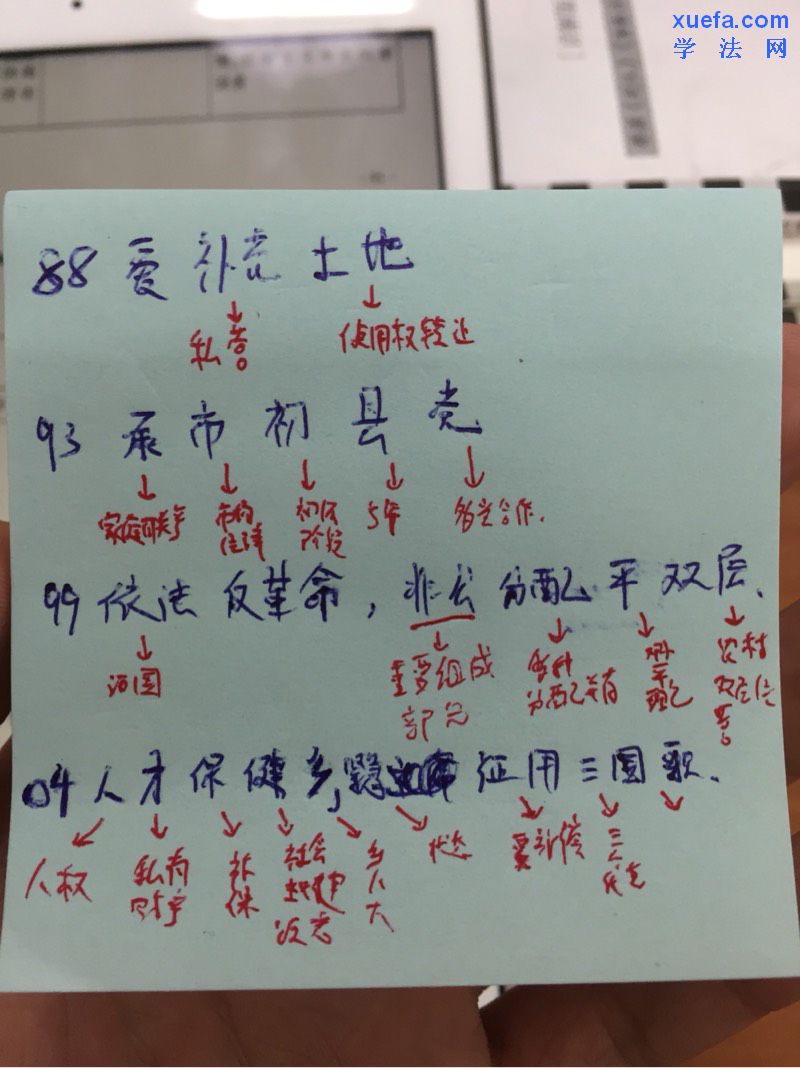 xuefa.com
学法网
88 爱 补充 土地
私营 使用权转让
93 承 市 初 县 党
家庭联产 市场经济 初级阶段 5年 多党合作.
99 依法 反革命, 非公 分配 平 双层.
治国 重要组成部分 多种分配并存 邓小平理论 农村双层经营
04 人才 保健乡, 征用 三国歌.
人权 私有财产 社保 社会主义建设者 乡人大 状态 要补偿 三个代表